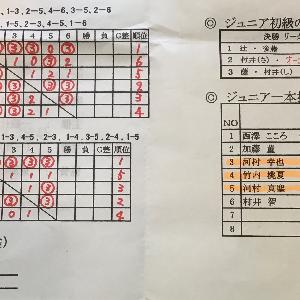 , 1-3, 2-5, 4-6, 3-5, 2-6
1-5, 2-4, 1-6
3 4 5 6 勝 負 G差 順位
③ ③ 0 ③ 1
1 0 ③ 2 6
1 2 1 5
③ 1 2
③ ③ 3
③ 1 4
1-3, 4-5, 2-3, 1-4, 3-5, 2-4, 1-5
3 4 5 勝 負 G差 順位
③ ③ ③ 1
1 1 5
③ 1 3
③ ③ 2
0 1 4
◎ ジュニア初級の
決勝 リー
1 辻 ・ 後藤
2 村井(さ) ・
3 藤 ・ 村井(し)
◎ ジュニア一本
NO
1 西澤 こころ
2 加藤 薫
3 河村 幸也
4 竹内 桃夏
5 河村 真聖
6 村井 智
7
8